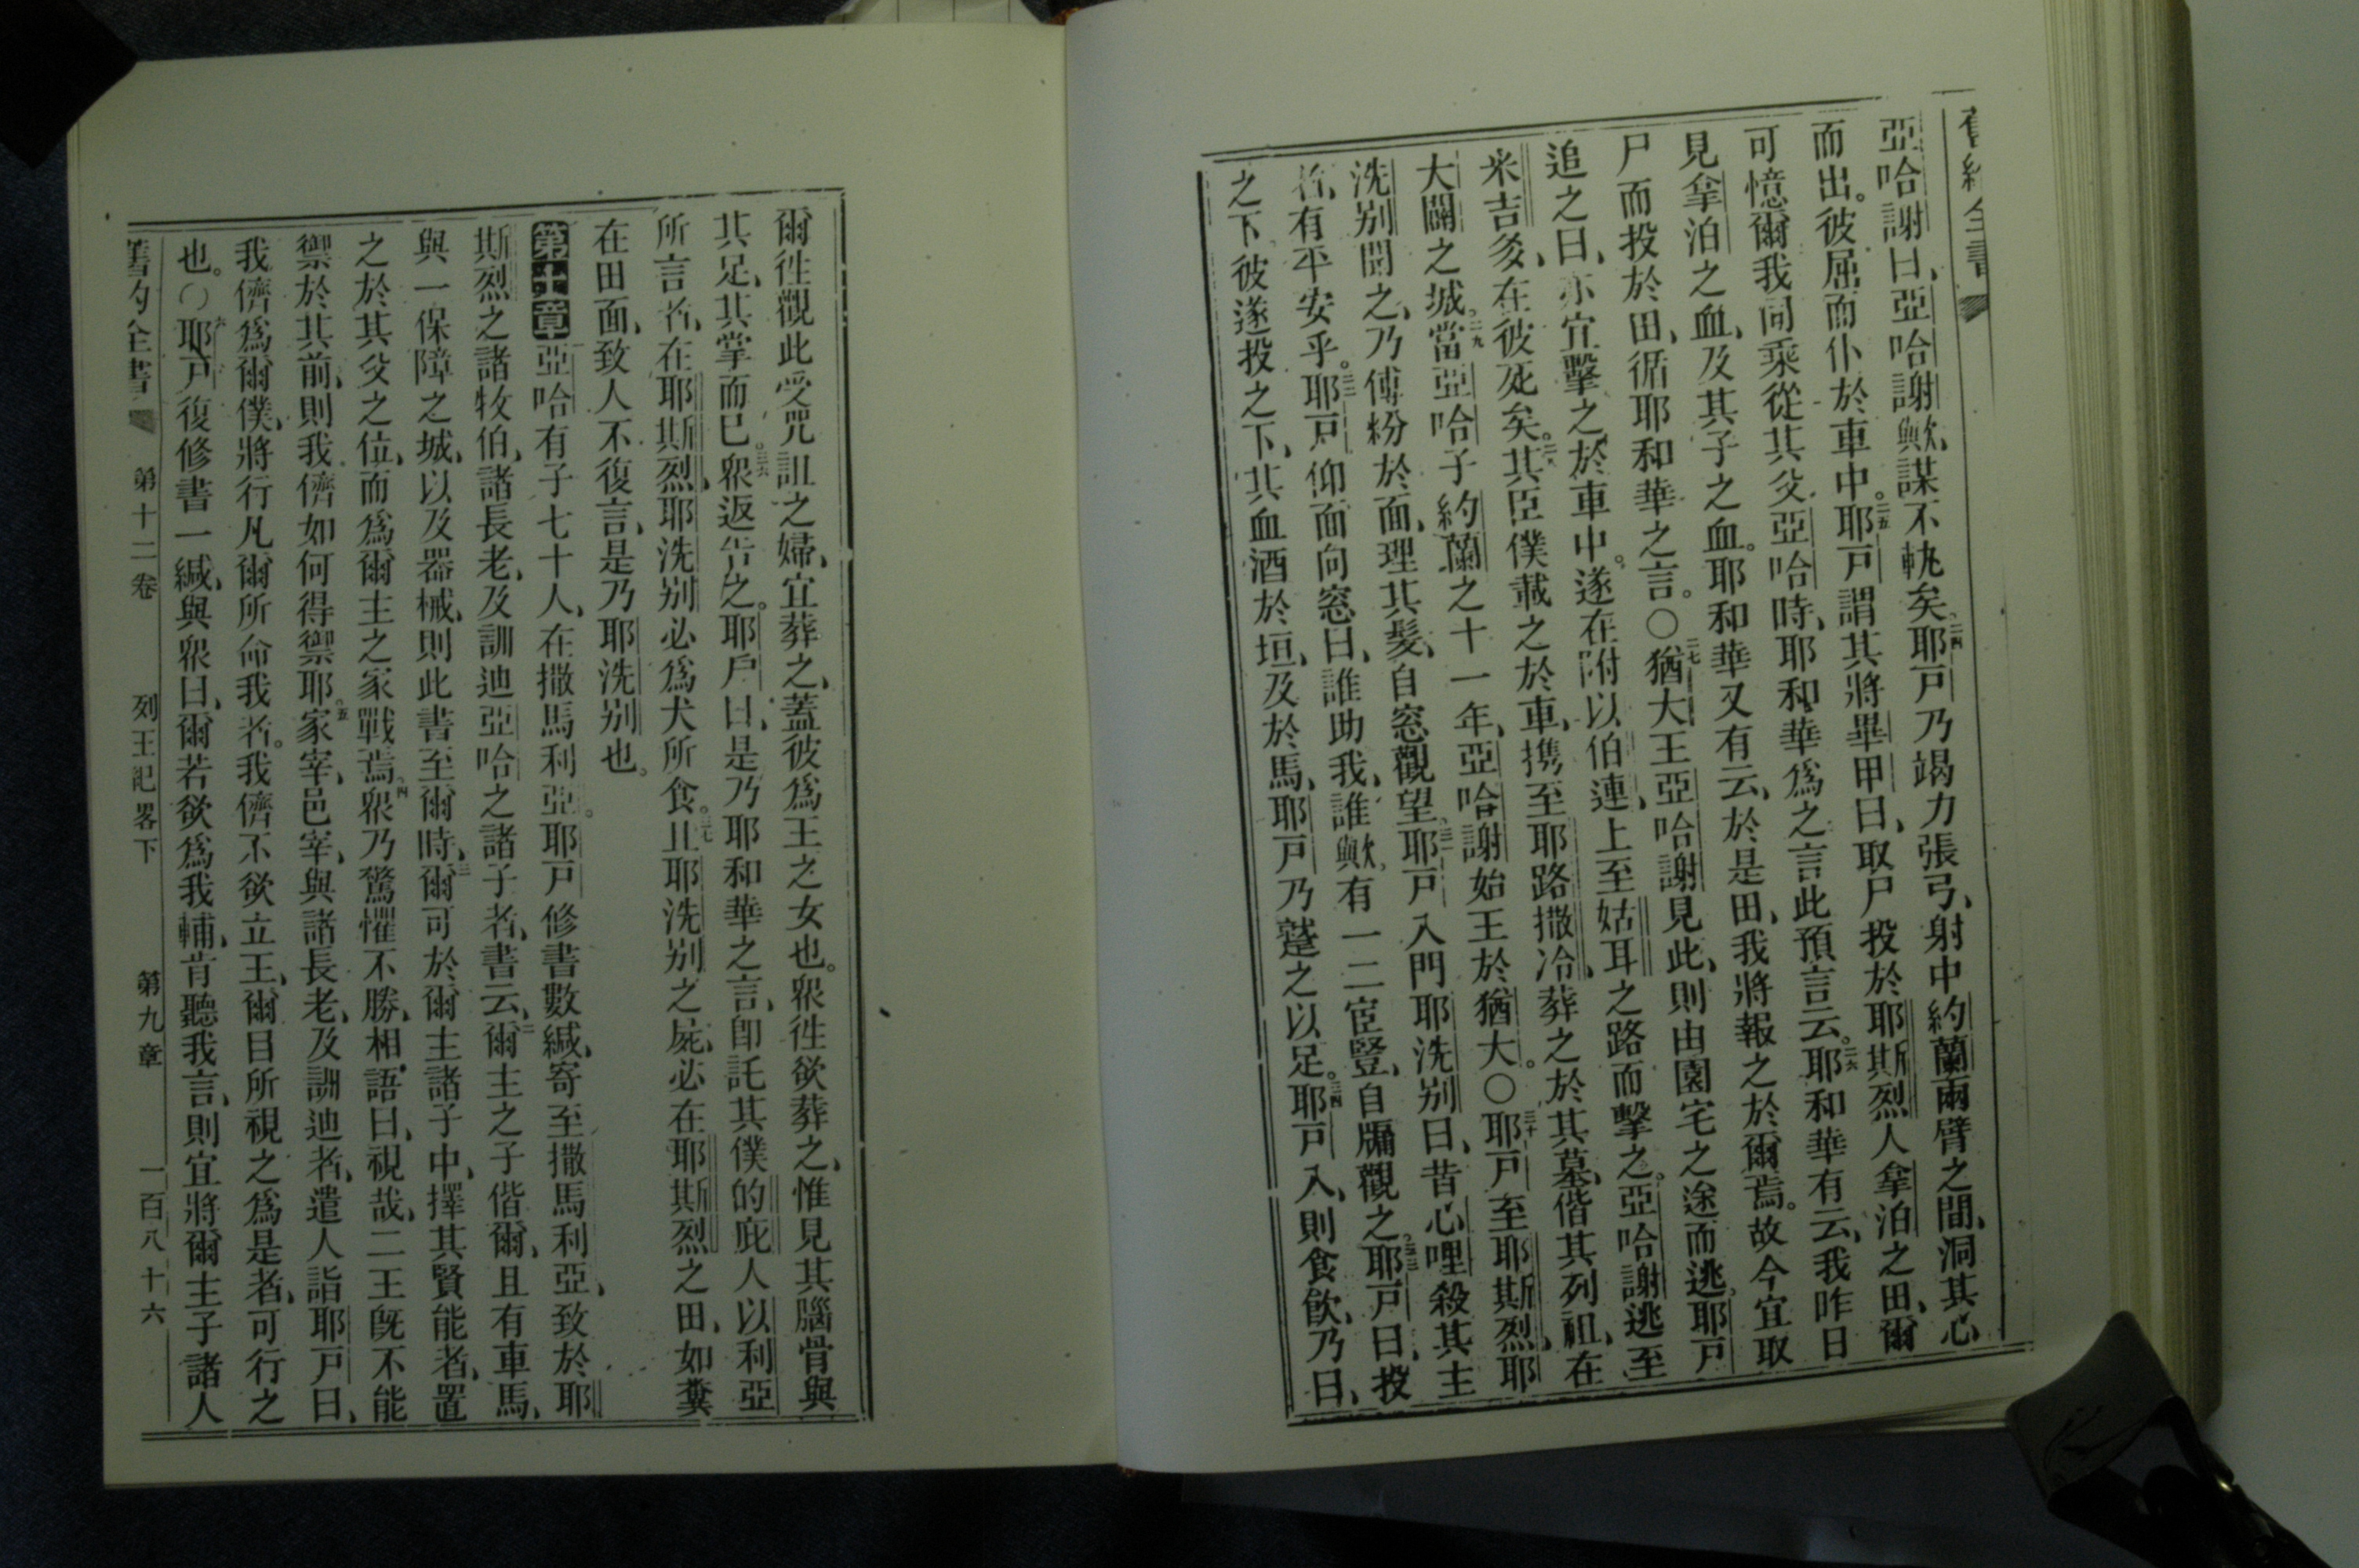 舊約全書
亞哈謝曰、亞哈謝歟、謀不軌矣。二四耶戸乃竭力張弓、射中約蘭兩臂之間、洞其心
而出。彼屈而仆於車中。二五耶戸謂其將畢甲曰、取尸投於耶斯烈人拿泊之田、爾
可憶爾我同乘從其父亞哈時、耶和華爲之言此預言云。二六耶和華有云、我昨日
見拿泊之血、及其子之血。耶和華又有云、於是田、我將報之於爾焉。故今宜取
尸而投於田、循耶和華之言。〇二七猶大王亞哈謝見此、則由園宅之途而逃。耶戸
追之曰、亦宜擊之於車中。遂在附以伯連、上至姑耳之路而擊之。亞哈謝逃至
米吉多、在彼死矣。二八其臣僕載之於車、携至耶路撒冷、葬之於其墓、偕其列祖、在
大闢之城。二九當亞哈子約蘭之十一年、亞哈謝始王於猶大。〇三十耶戸至耶斯烈、耶
洗别聞之、乃傅粉於面、理其髪、自窓觀望。三一耶戸入門、耶洗别曰、昔心哩殺其主
者、有平安乎。三二耶戸仰面向窓曰、誰助我、誰歟。有一二宦豎、自牖觀之。三三耶戸曰、投
之下。彼遂投之下、其血洒於垣、及於馬、耶戸乃躂之以足。三四耶戸入、則食飲、乃曰、
爾徃觀此受咒詛之婦、宜葬之、蓋彼爲王之女也。衆徃欲葬之、惟見其腦骨與
其足、其掌而已。三六衆返告之。耶戸曰、是乃耶和華之言、卽託其僕的庇人以利亞
所言者、在耶斯烈、耶洗别必爲犬所食。三七且耶洗别之屍、必在耶斯烈之田、如糞
在田面、致人不復言、是乃耶洗别也。
第十章 亞哈有子七十人、在撒馬利亞。耶戸修書數緘、寄至撒馬利亞、致於耶
斯烈之諸牧伯、諸長老、及訓迪亞哈之諸子者、書云、二爾主之子偕爾、且有車馬、
與一保障之城、以及器械、則此書至爾時、三爾可於爾主諸子中、擇其賢能者、置
之於其父之位、而爲爾主之家戰焉。四衆乃驚懼不勝、相語曰、視哉、二王旣不能
禦於其前、則我儕如何得禦耶。五家宰、邑宰、與諸長老、及訓迪者、遣人詣耶戸曰、
我儕爲爾僕、將行凡爾所命我者。我儕不欲立王、爾目所視之爲是者、可行之
也。〇六耶戸復修書一緘、與衆曰、爾若欲爲我輔、肯聽我言、則宜將爾主子諸人
舊約全書 第十二卷 列王紀畧下 第九章 一百八十六